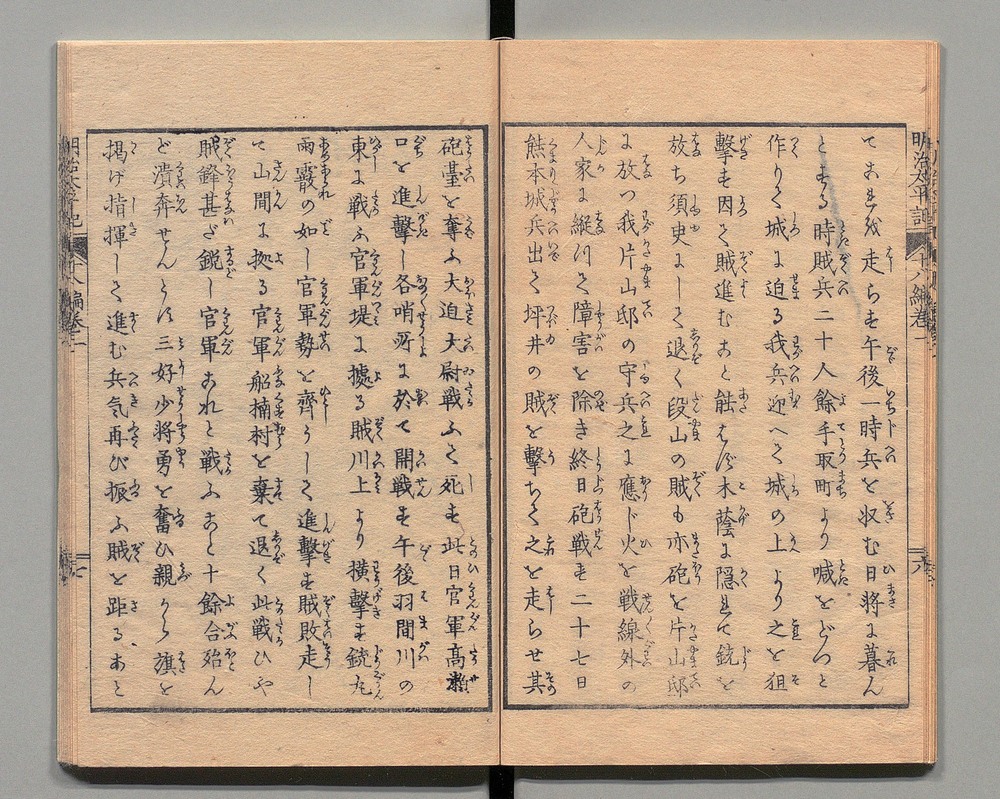 てこれを走らす午後一時兵を収む日将に暮ん
とする時賊兵二十人餘手取町より喊をどつと
作りて城に迫る我兵迎へて城の上より之を狙
擊す因て賊進むこと能はず木蔭に隠れて銃を
放ち須臾にして退く段山の賊も亦砲を片山邸
に放つ我片山邸の守兵之に應じ火を戦線外の
人家に縦ツて障害を除き終日砲戦す二十七日
熊本城兵出て坪井の賊を擊ちて之を走らせ其
明治太平記
十八編巻一
六
砲臺を奪ふ大迫大尉戦ふて死す此日官軍高瀬
口を進擊し各哨所に於て開戦す午後羽間川の
東に戦ふ官軍堤に據る賊川上より横擊す銃丸
雨霰の如し官軍勢を齊うして進擊す賊敗走し
て山間に拠る官軍船楠村を棄て退く此戦ひや
賊鋒甚だ鋭し官軍これと戦ふこと十餘合殆ん
ど潰奔せんとす三好少将勇を奮ひ親から旗を
掲げ指揮して進む兵気再び振ふ賊を距ること
明治太平記
十八編巻一
七